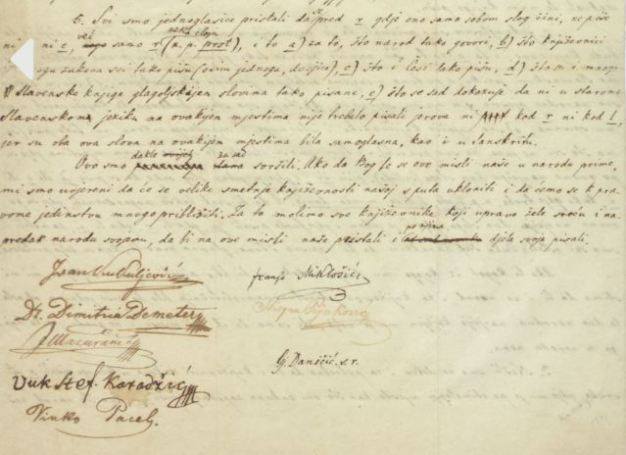 5. Svi smo jednoglasice pristali da se pred r gdje ono samo sobom slog čini, ne piše
ni ni e, već samo r (n. p. prst), neka slog i to a) za to, što narod tako govori, b) što književnici
zakona svi tako pišu (osim jednoga, dvojice), c) što i Česi tako pišu, d) što su i mnoge
Slavenske knjige glagoljskijem slovima tako pisane, e) što se sad dokazuje da ni u starome
Slavenskom jeziku na ovakijem mjestima nije trebalo pisati jerova ni kod r ni kod l,
jer su oba ova slova na ovakijem mjestima bila samoglasna, kao i u Sanskritu.
Ovo smo dakle za sad svršili. Ako da Bog te se ove misli naše u narodu prime,
mi smo uvjereni da će se velike smetnje književnosti našoj s puta ukloniti i da ćemo se k pra-
vome jedinstvu mnogo približiti. Za to molimo sve književnike koji upravo žele sreću i na-
predak narodu svojemu, da bi na ove misli naše pristali i po njima djela svoja pisali.
Ivan Kukuljević
Dr. Dimitria Demeter
I Mažuranić
Vuk Stef. Karadžić
Vinko Pacel.
Franjo Miklošič
Stjepan Pejaković
Gj. Daničić. s. r.